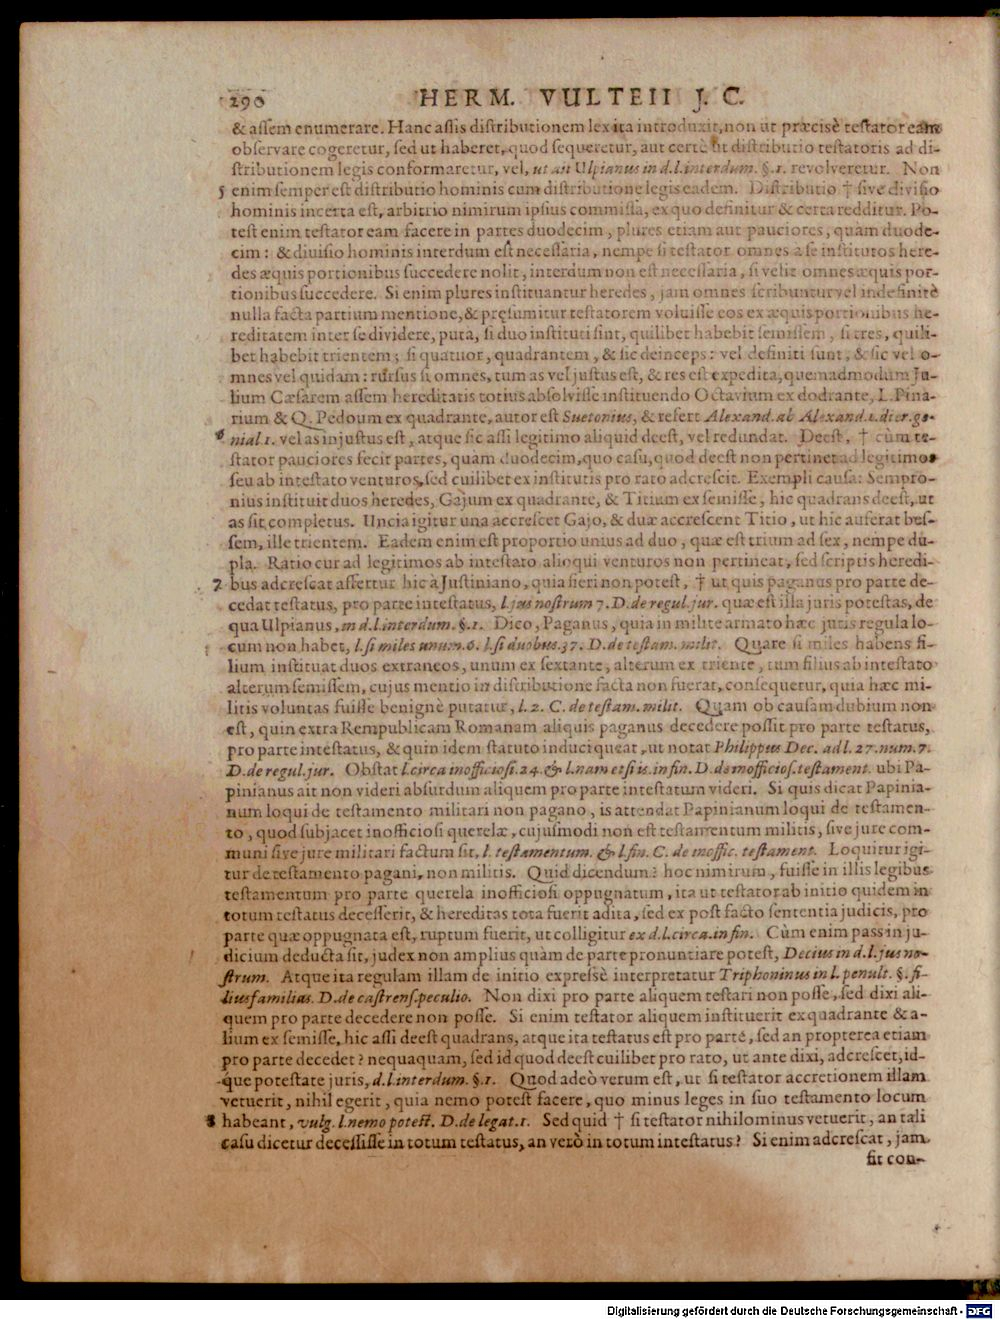 290 HERM. VULTEII J. C.
& assem enumerare. Hanc assis distributionem lex ita introduxit, non ut præcisè testator eam
observare cogeretur, sed ut haberet, quod sequeretur, aut certè ut distributio testatoris ad di-
stributionem legis conformaretur, vel, ut ait Ulpianus in d. l. interdum. §. 1. revolveretur. Non
5 enim semper est distributio hominis cum distributione legis eadem. Distributio † sive divisio
hominis incerta est, arbitrio nimirum ipsius commissa, ex quo definitur & certa redditur. Po-
test enim testator eam facere in partes duodecim, plures etiam aut pauciores, quàm duode-
cim: & divisio hominis interdum est necessaria, nempe si testator omnes a se institutos here-
des æquis portionibus succedere nolit, interdum non est necessaria, si velit omnes æquis por-
tionibus succedere. Si enim plures instituantur heredes, jam omnes scribuntur vel indefinitè
nulla facta partium mentione, & præsumitur testatorem voluisse eos ex æquis portionibus he-
reditatem inter se dividere, putà, si duo instituti sint, quilibet habebit semissem, si tres, quili-
bet habebit trientem; si quatuor, quadrantem, & sic deinceps: vel definiti sunt, & sic vel o-
mnes vel quidam: rursus si omnes, tum as vel justus est, & res est expedita, quemadmodum Ju-
lium Cæsarem assem hereditatis totius absolvisse instituendo Octavium ex dodrante, L. Pina-
rium & Q. Pedoum ex quadrante, autor est Suetonius, & refert Alexand. ab Alexand. 1. dier. ge-
6 nial. 1. vel as injustus est, atque sic assi legitimo aliquid deest, vel redundat. Deest, † cùm te-
stator pauciores fecit partes, quàm duodecim, quo casu, quod deest non pertinet ad legitimos
seu ab intestato venturos, sed cuilibet ex institutis pro rato adcrescit. Exempli causa: Sempro-
nius instituit duos heredes, Gajum ex quadrante, & Titium ex semisse, hic quadrans deest, ut
as sit completus. Uncia igitur una accrescet Gajo, & duæ accrescent Titio, ut hic auferat bes-
sem, ille trientem. Eadem enim est proportio unius ad duo, quæ est trium ad sex, nempe du-
pla. Ratio cur ad legitimos ab intestato alioqui venturos non pertineat, sed scriptis heredi-
7 bus adcrescat affertur hic à Justiniano, quia fieri non potest, † ut quis paganus pro parte de-
cedat testatus, pro parte intestatus, l. jus nostrum 7. D. de regul. jur. quæ est illa juris potestas, de
qua Ulpianus, in d. l. interdum. §. 1. Dico, Paganus, quia in milite armato hæc juris regula lo-
cum non habet, l. si miles unum. 6. l. si duobus. 37. D. de testam. milit. Quare si miles habens fi-
lium instituat duos extraneos, unum ex sextante, alterum ex triente, tum filius ab intestato
alterum semissem, cujus mentio in distributione facta non fuerat, consequetur, quia hæc mi-
litis voluntas fuisse benignè putatur, l. 2. C. de testam. milit. Quam ob causam dubium non
est, quin extra Rempublicam Romanam aliquis paganus decedere possit pro parte testatus,
pro parte intestatus, & quin idem statuto induci queat, ut notat Philippus Dec. ad l. 27. num. 7.
D. de regul. jur. Obstat l. circa inofficiosi. 24. & l. nam etsi is. in fin. D. de inofficios. testament. ubi Pa-
pinianus ait non videri absurdum aliquem pro parte intestatum videri. Si quis dicat Papinia-
num loqui de testamento militari non pagano, is attendat Papinianum loqui de testamen-
to, quod subjacet inofficiosi querelæ, cujusmodi non est testamentum militis, sive jure com-
muni sive jure militari factum sit, l. testamentum. & l. fin. C. de inoffic. testament. Loquitur igi-
tur de testamento pagani, non militis. Quid dicendum? hoc nimirum, fuisse in illis legibus
testamentum pro parte querela inofficiosi oppugnatum, ita ut testator ab initio quidem in
totum testatus decesserit, & hereditas tota fuerit adita, sed ex post facto sententia judicis, pro
parte quæ oppugnata est, ruptum fuerit, ut colligitur ex d. l. circa. in fin. Cùm enim pass in ju-
dicium deducta sit, judex non amplius quàm de parte pronuntiare potest, Decius in d. l. jus no-
strum. Atque ita regulam illam de initio expressè interpretatur Triphoninus in l. penult. §. fi-
liusfamilias. D. de castrens. peculio. Non dixi pro parte aliquem testari non posse, sed dixi ali-
quem pro parte decedere non posse. Si enim testator aliquem instituerit ex quadrante & a-
lium ex semisse, hic assi deest quadrans, atque ita testatus est pro parte, sed an propterea etiam
pro parte decedet? nequaquam, sed id quod deest cuilibet pro rato, ut ante dixi, adcrescet, id-
que potestate juris, d. l. interdum. §. 1. Quod adeò verum est, ut si testator accretionem illam
vetuerit, nihil egerit, quia nemo potest facere, quo minus leges in suo testamento locum
8 habeant, vulg. l. nemo potest. D. de legat. 1. Sed quid † si testator nihilominus vetuerit, an tali
casu dicetur decessisse in totum testatus, an verò in totum intestatus? Si enim adcrescat, jam
fit con-
Digitalisierung gefördert durch die Deutsche Forschungsgemeinschaft - DFG